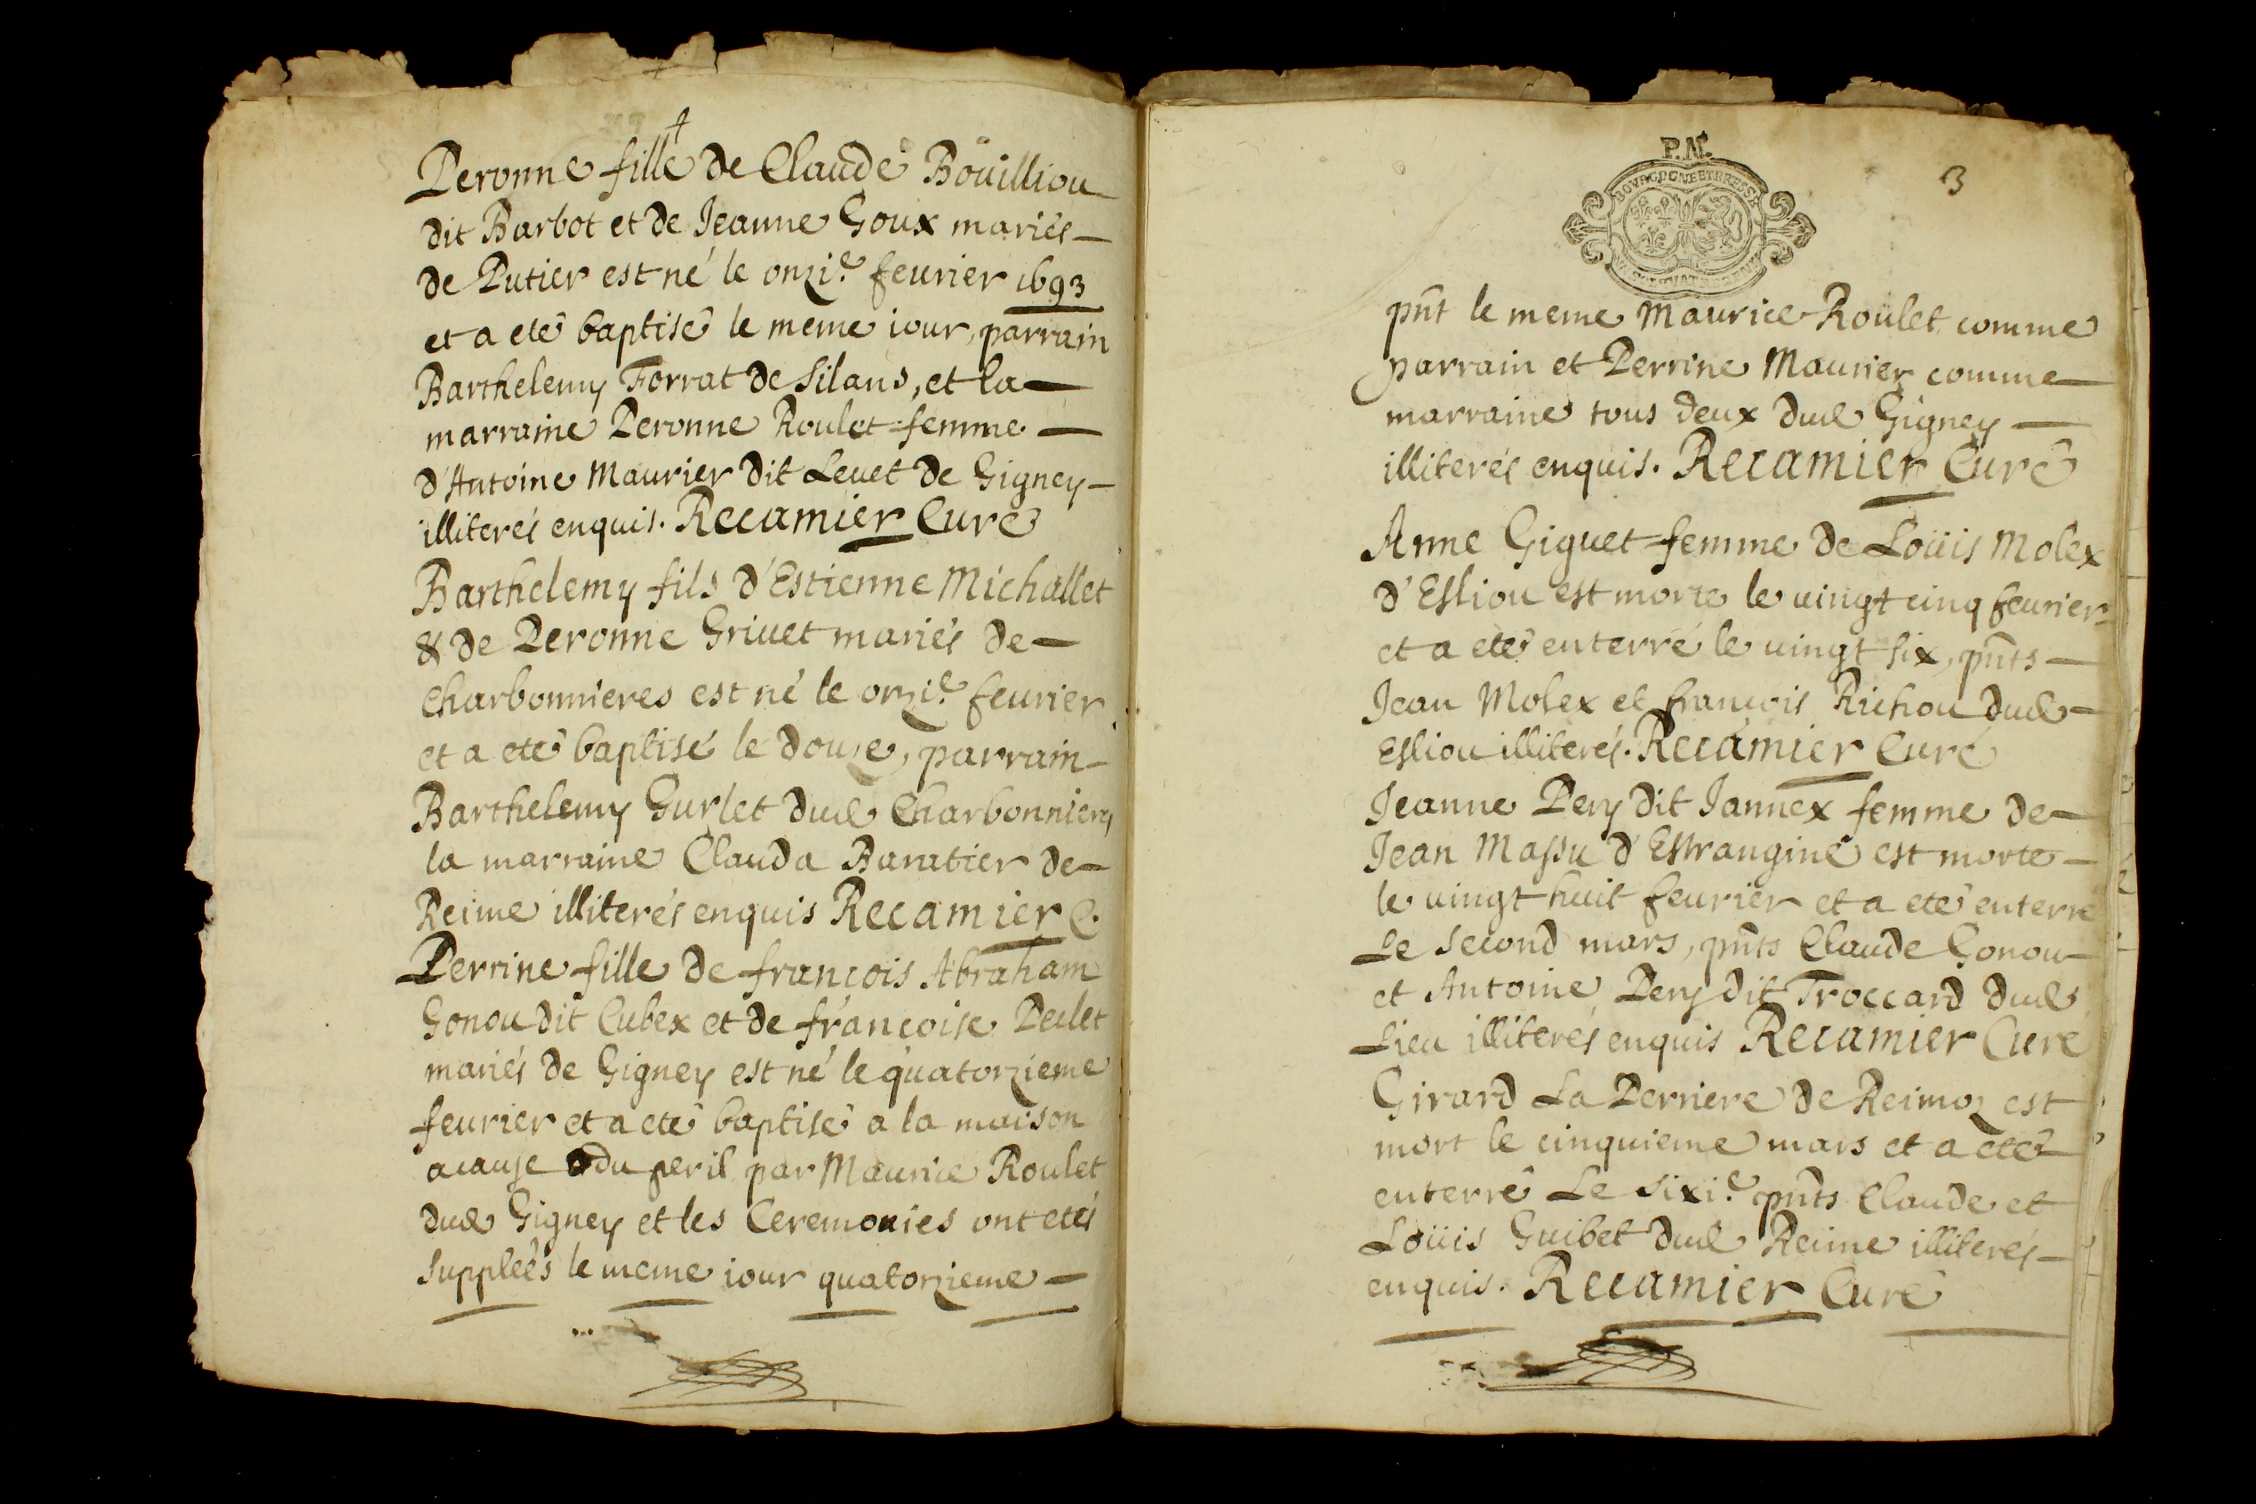 Peronne fille de Claude Boüilliou
dit Barbot et de Jeanne Goux mariés
de Putier est né le onzi.e feurier 1693
et a eté baptisé le meme iour, parrain
Barthelemy Forrat de Silans, et la
marraine Peronne Roulet femme
d'Antoine Maurier dit Leuet de Gigney
illiterés enquis. Recamier Curé
Barthelemy fils d'Estienne Michallet
& de Peronne Griuet mariés de
Charbonnieres est né le onzi.e feurier
et a eté baptisé le douze, parrain
Barthelemy Gurlet dud Charbonnieres
la marraine Clauda Baratier de
Reime illiterés enquis Recamier C.
Perrine fille de françois Abraham
Gonou dit Cubex et de françoise Peclet
mariés de Gigney est né le quatorzieme
feurier et a eté baptisé a la maison
acause du peril par Maurice Roulet
dud Gigney et les Ceremonies ont etés
suppleés le meme iour quatorzieme
P.Mt.
BOVRGOGNE ET BRESSE
3
pñt le meme Maurice Roulet comme
parrain et Perrine Maurier comme
marraine tous deux dud Gigney
illiterés enquis. Recamier Curé
Anne Giguet femme de Loüis Molex
d'Esliou est morte le uingt cinq feurier
et a eté enterré le uingt six, pñts
Jean Molex et françois Richou dud
Esliou illiterés. Recamier Curé
Jeanne Pery dit Jannex femme de
Jean Massu d'Estrangine est morte
le uingt huit feurier et a eté enterré
Le second mars, pñts Claude Gonou
et Antoine Pery dit Troccard dud
Lieu illiterés enquis Recamier Curé
Girard La Perriere de Reimoz est
mort le cinquieme mars et a eté
enterré Le sixi.e pñts Claude et
Loüis Guibet dud Reime illiterés
enquis. Recamier Curé